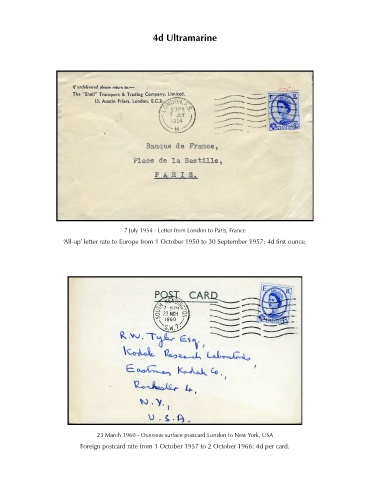 4d Ultramarine
If undelivered please return to:—
The "Shell" Transport & Trading Company, Limited,
13, Austin Friars, London, E.C.2.
LONDON, E.C.
7 JLY
1954
M
E R
Banque de France,
Place de la Bastille,
PARIS.
7 July 1954 - Letter from London to Paris, France
'All-up' letter rate to Europe from 1 October 1950 to 30 September 1957: 4d first ounce.
POST CARD
1960
S.W.7.
E R
R.W. Tyler Esq,
Kodak Research Laboratories,
Eastman Kodak Co.,
Rochester 4,
N.Y.,
U.S.A.
23 March 1960 - Overseas surface postcard London to New York, USA
Foreign postcard rate from 1 October 1957 to 2 October 1966: 4d per card.